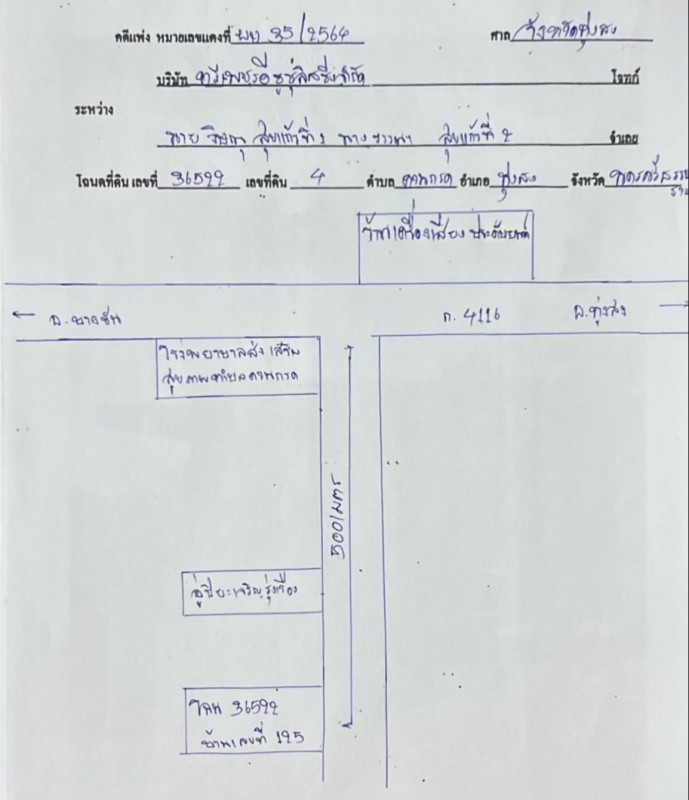 คดีแพ่ง หมายเลขแดงที่ ผบ 35/2564 ศาล จังหวัดทุ่งสง
บริษัท ตรีเพชรอีซูซุลิสซิ่งจำกัด โจทก์
ระหว่าง
นาย สุขแก้วที่ 1 นาง สุขแก้วที่ 2 จำเลย
โฉนดที่ดิน เลขที่ 36522 เลขที่ดิน 4 ตำบล ควนกรด อำเภอ ทุ่งสง จังหวัด นครศรีธรรม
ราช
ร้านเครื่องเสียง ประดับยนต์
← อ.บางขัน ถ. 4116 อ.ทุ่งสง →
โรงพยาบาลส่งเสริม
สุขภาพตำบลควนกรด
500 เมตร
อู่ปิยะเจริญรุ่งเรือง
โฉนด 36522
บ้านเลขที่ 125